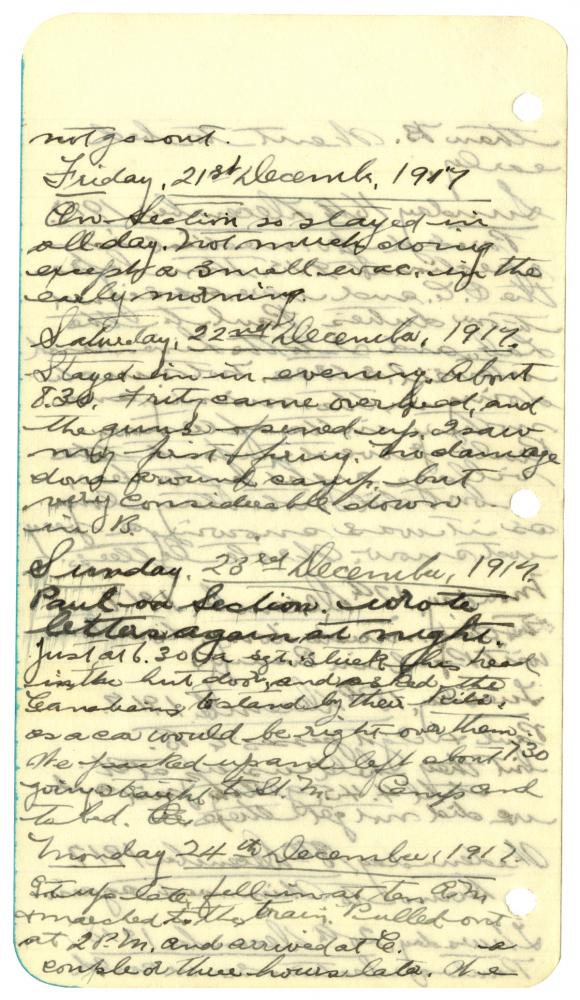 not go out.
Friday, 21st Decemb, 1917
On Section so stayed in
all day. Not much doing
except a small evac. in the
early morning.
Saturday, 22nd December, 1917.
Stayed in in evening. About
8.30, Fritz came over head, and
the guns opened up. I saw
my first fring. No damage
done around camp, but
very considerable down
in B.
Sunday. 23rd December, 1917.
Paul on Section. wrote
letters again at night.
Just at 6.30 a sgt. stuck his head
in the hut door, and asked the
Canadians to stand by their kits,
as a car would be right over them.
We packed up and left about 7.30
going straight to St. M. Camp and
to bed.
Monday 24th December, 1917.
Got up late, fell in at ten A.M
& marched to the train. Pulled out
at 2 P.M. and arrived at C. a
couple or three hours late. We